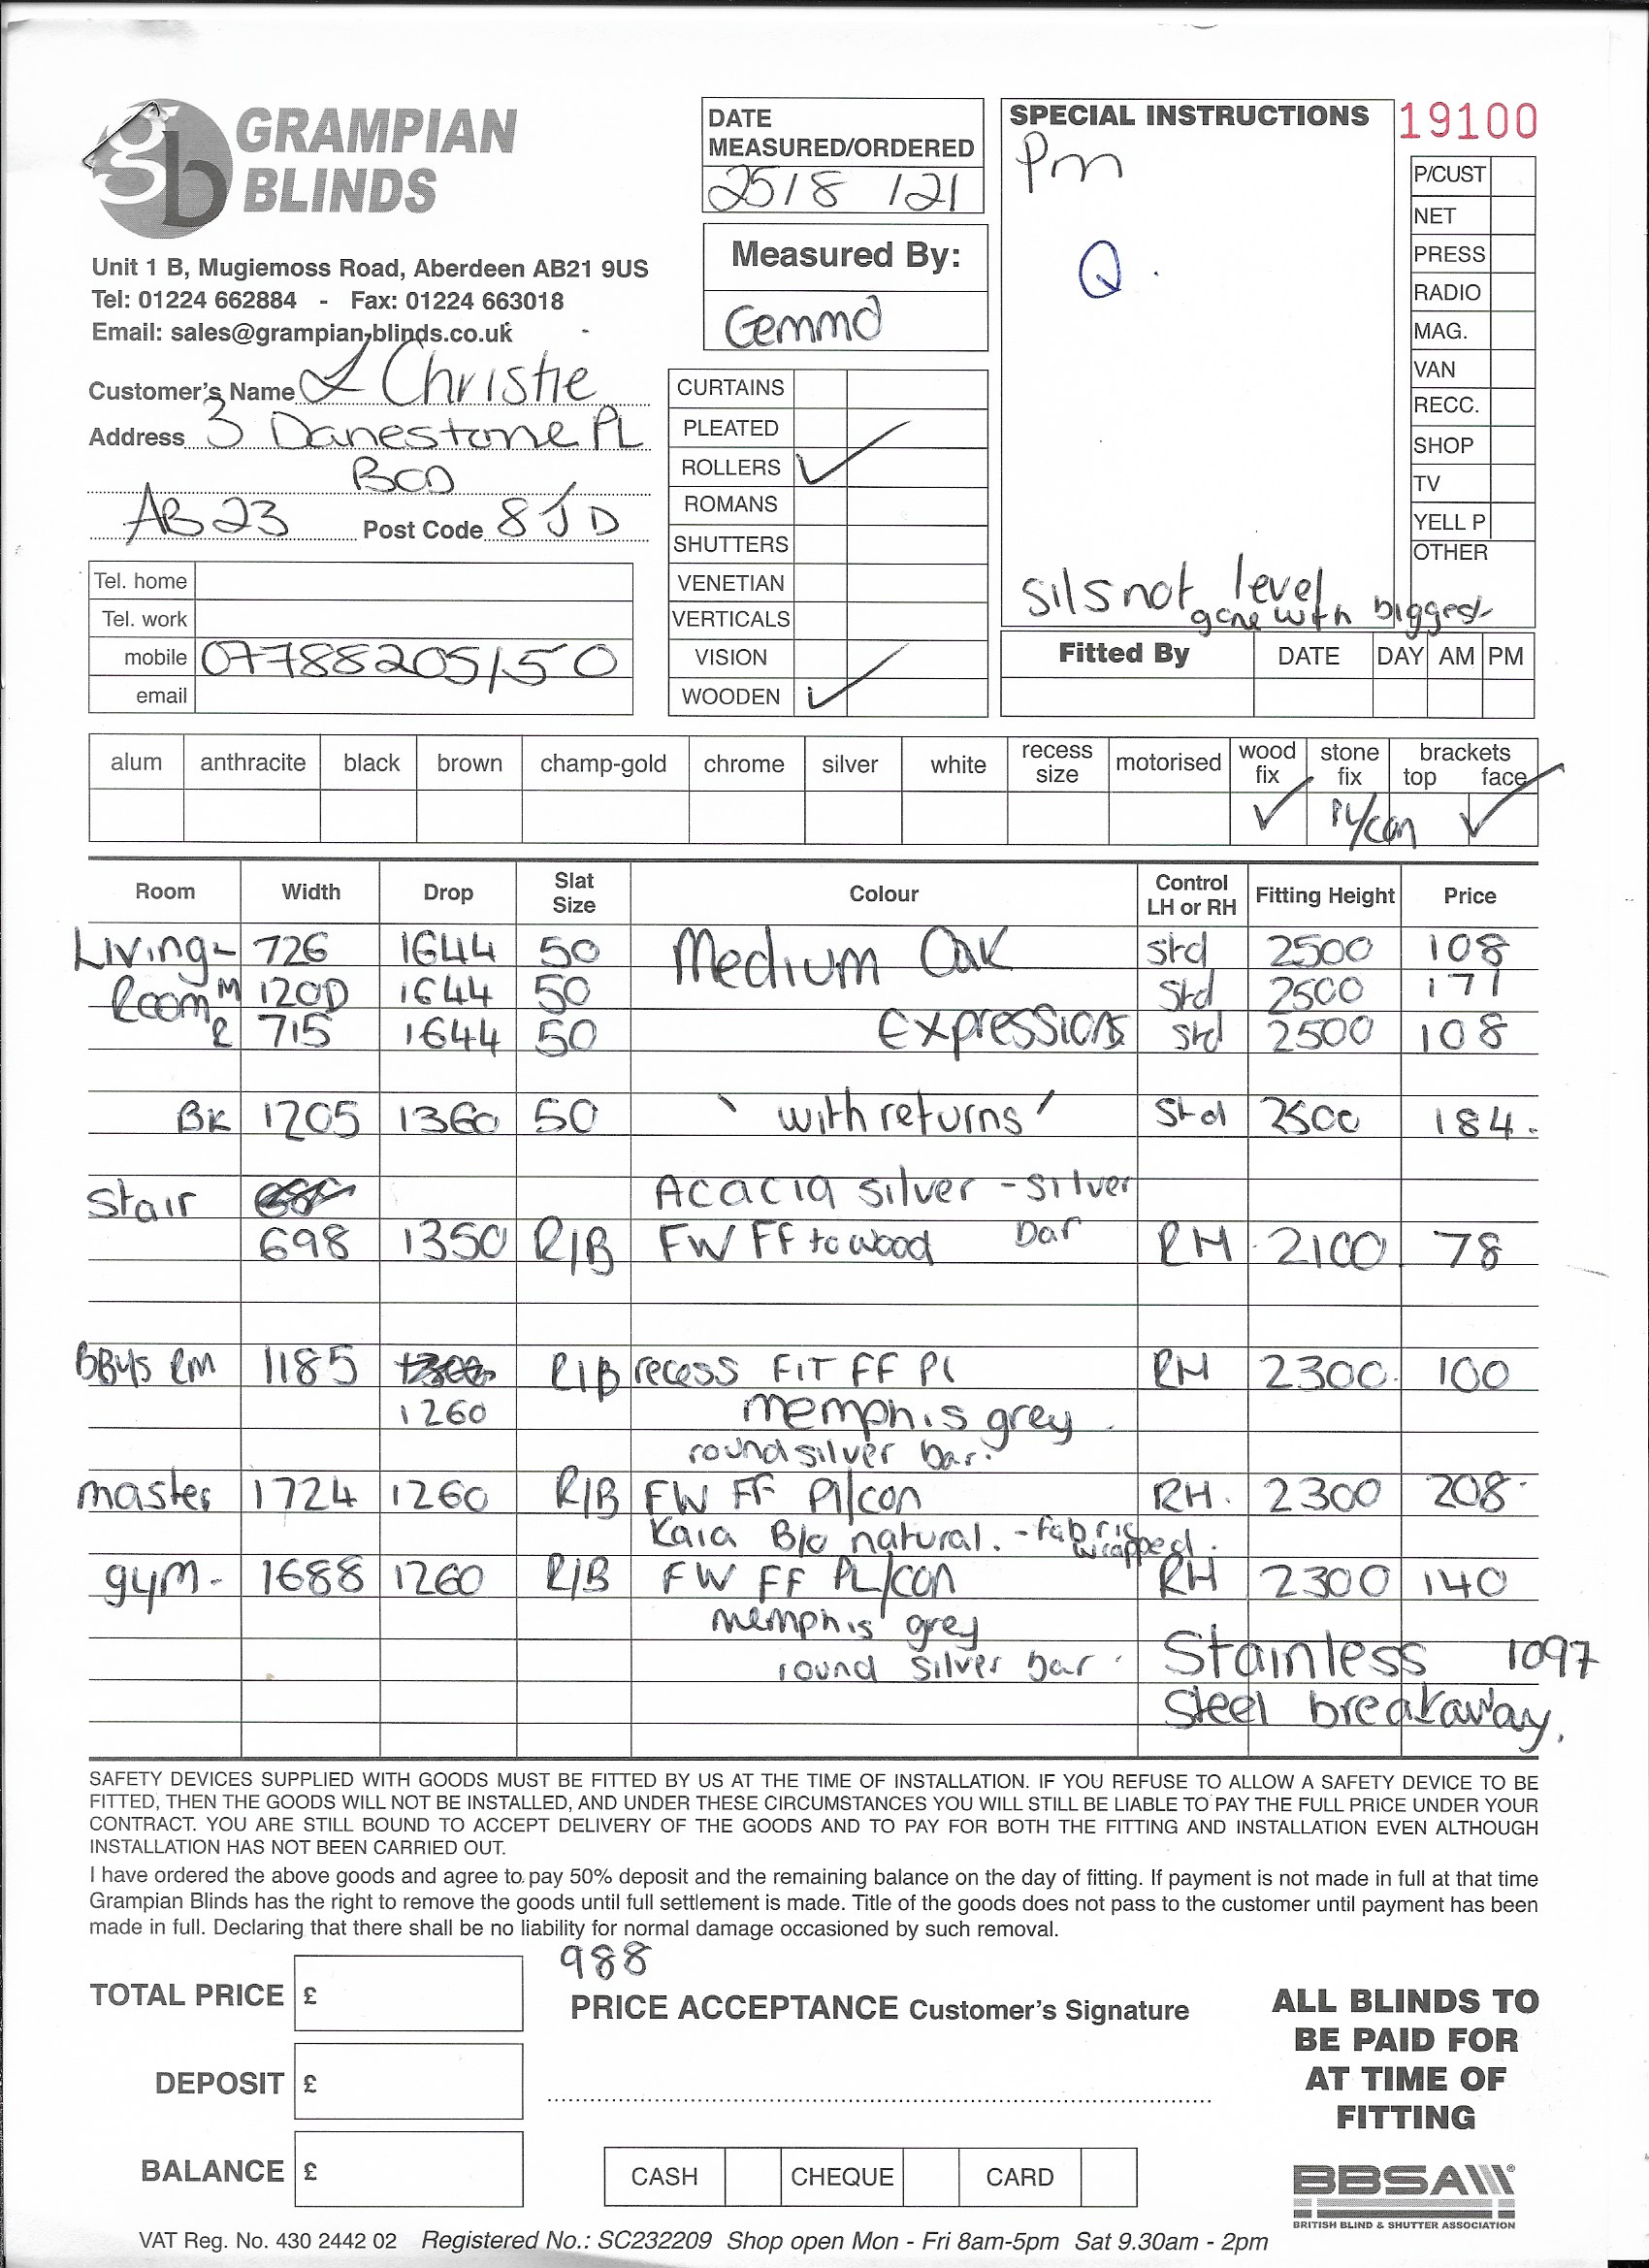 GRAMPIAN
BLINDS
gb
Unit 1 B, Mugiemoss Road, Aberdeen AB21 9US
Tel: 01224 662884 - Fax: 01224 663018
Email: sales@grampian-blinds.co.uk
Customer's Name L Christie
Address 3 Danestone PL
BOD
AB23 Post Code 8JD
Tel. home
Tel. work
mobile 07788205150
email
DATE
MEASURED/ORDERED
25/8/21
Measured By:
Gemma
CURTAINS
PLEATED
ROLLERS ✓
ROMANS
SHUTTERS
VENETIAN
VERTICALS
VISION
WOODEN ✓
SPECIAL INSTRUCTIONS
Pm
Q.
sils not level
gone with biggest
19100
P/CUST
NET
PRESS
RADIO
MAG.
VAN
RECC.
SHOP
TV
YELL P
OTHER
Fitted By DATE DAY AM PM
alum anthracite black brown champ-gold chrome silver white recess size motorised wood fix stone fix brackets top face
✓ PL/con ✓
Room Width Drop Slat Size Colour Control LH or RH Fitting Height Price
Living L 726 1644 50 Medium Oak std 2500 108
Room M 1200 1644 50 std 2500 171
R 715 1644 50 Expressions std 2500 108
BK 1205 1360 50 ' with returns ' std 2500 184.
Stair Acacia silver - silver
698 1350 R/B FW FF to wood bar RH 2100 78
BBys RM 1185 R/B recess FIT FF Pl RH 2300 100
1260 memphis grey
round silver bar.
master 1724 1260 R/B FW FF Pl/con RH. 2300 208
Kaia B/o natural. - fabric wrapped.
gym - 1688 1260 R/B FW FF PL/con RH 2300 140
memphis grey
round silver bar. Stainless 1097
Steel breakaway.
SAFETY DEVICES SUPPLIED WITH GOODS MUST BE FITTED BY US AT THE TIME OF INSTALLATION. IF YOU REFUSE TO ALLOW A SAFETY DEVICE TO BE
FITTED, THEN THE GOODS WILL NOT BE INSTALLED, AND UNDER THESE CIRCUMSTANCES YOU WILL STILL BE LIABLE TO PAY THE FULL PRICE UNDER YOUR
CONTRACT. YOU ARE STILL BOUND TO ACCEPT DELIVERY OF THE GOODS AND TO PAY FOR BOTH THE FITTING AND INSTALLATION EVEN ALTHOUGH
INSTALLATION HAS NOT BEEN CARRIED OUT.
I have ordered the above goods and agree to pay 50% deposit and the remaining balance on the day of fitting. If payment is not made in full at that time
Grampian Blinds has the right to remove the goods until full settlement is made. Title of the goods does not pass to the customer until payment has been
made in full. Declaring that there shall be no liability for normal damage occasioned by such removal.
988
TOTAL PRICE £
PRICE ACCEPTANCE Customer's Signature
DEPOSIT £
BALANCE £
CASH CHEQUE CARD
ALL BLINDS TO
BE PAID FOR
AT TIME OF
FITTING
BBSA
BRITISH BLIND & SHUTTER ASSOCIATION
VAT Reg. No. 430 2442 02 Registered No.: SC232209 Shop open Mon - Fri 8am-5pm Sat 9.30am - 2pm